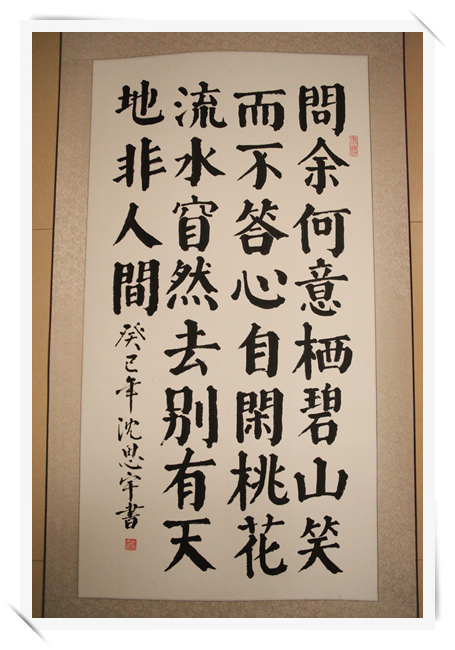 問余何意栖碧山笑
而不答心自閑桃花
流水窅然去别有天
地非人間
癸巳年沈思宇書